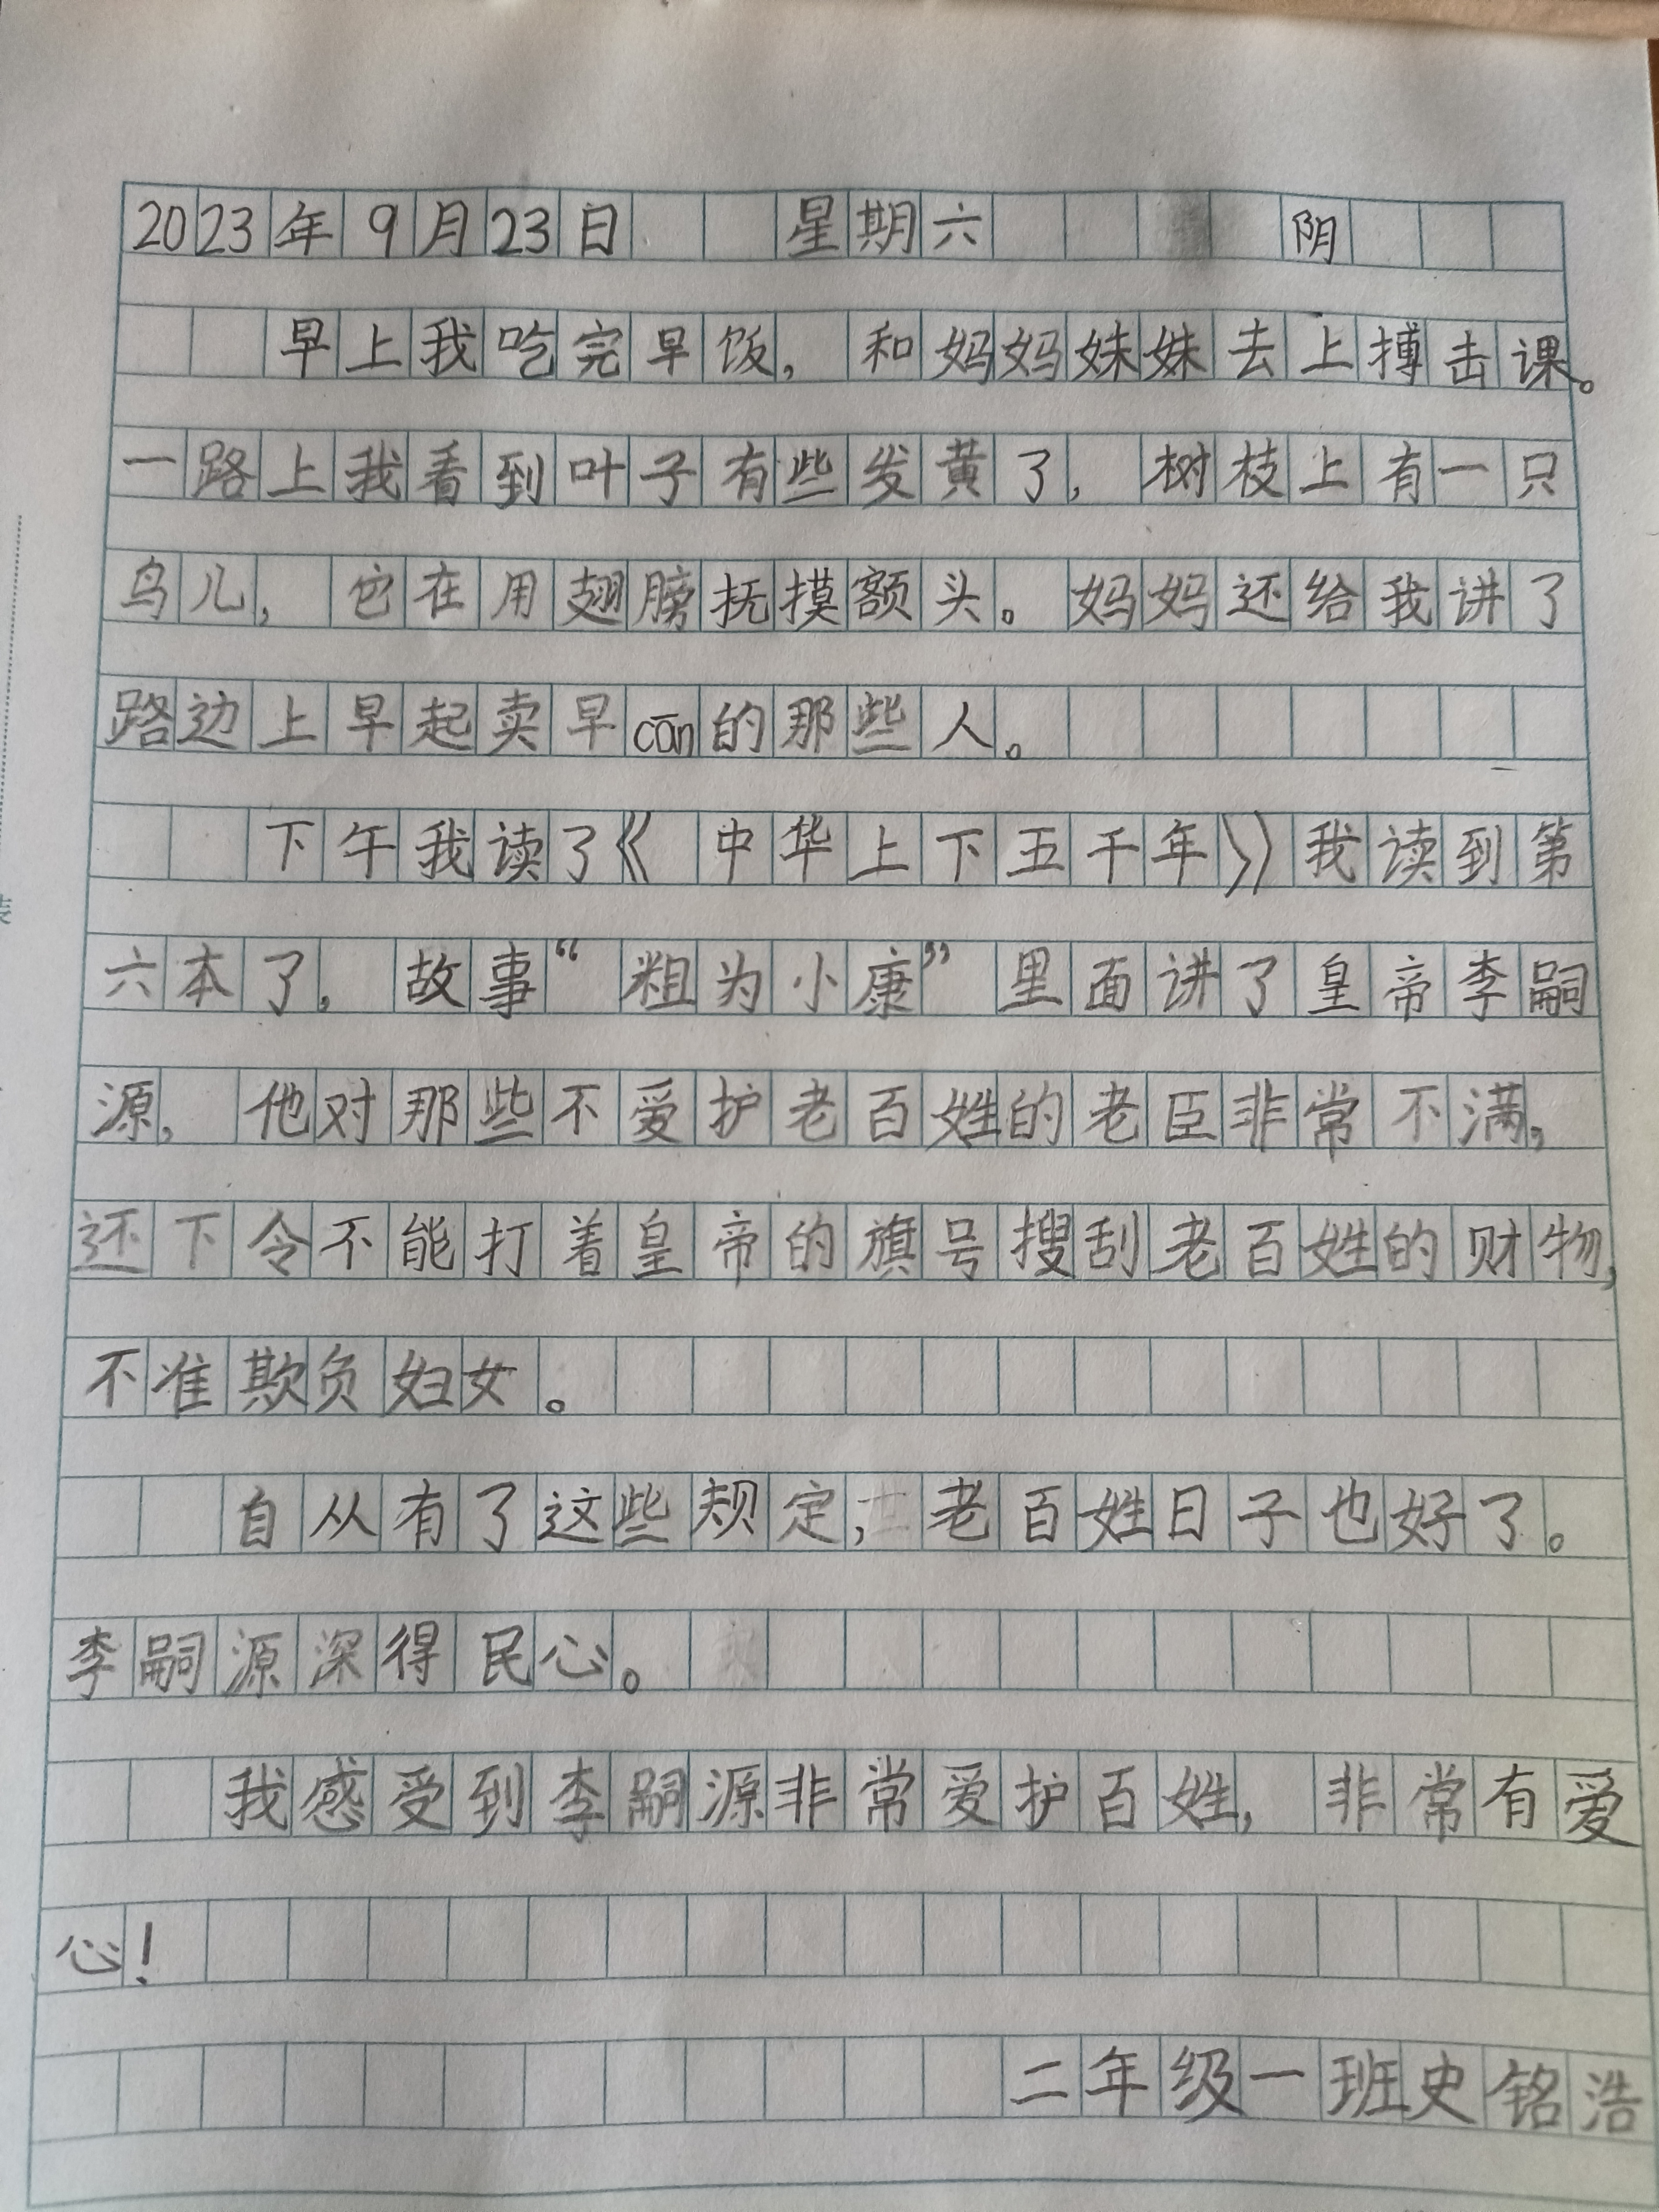 2023年9月23日 星期六 阴
早上我吃完早饭，和妈妈妹妹去上搏击课。
一路上我看到叶子有些发黄了，树枝上有一只
鸟儿，它在用翅膀抚摸额头。妈妈还给我讲了
路边上早起卖早cān的那些人。
下午我读了《中华上下五千年》我读到第
六本了。故事“粗为小康”里面讲了皇帝李嗣
源，他对那些不爱护老百姓的老臣非常不满，
还下令不能打着皇帝的旗号搜刮老百姓的财物，
不准欺负妇女。
自从有了这些规定，老百姓日子也好了。
李嗣源深得民心。
我感受到李嗣源非常爱护百姓，非常有爱
心！
二年级一班史铭浩